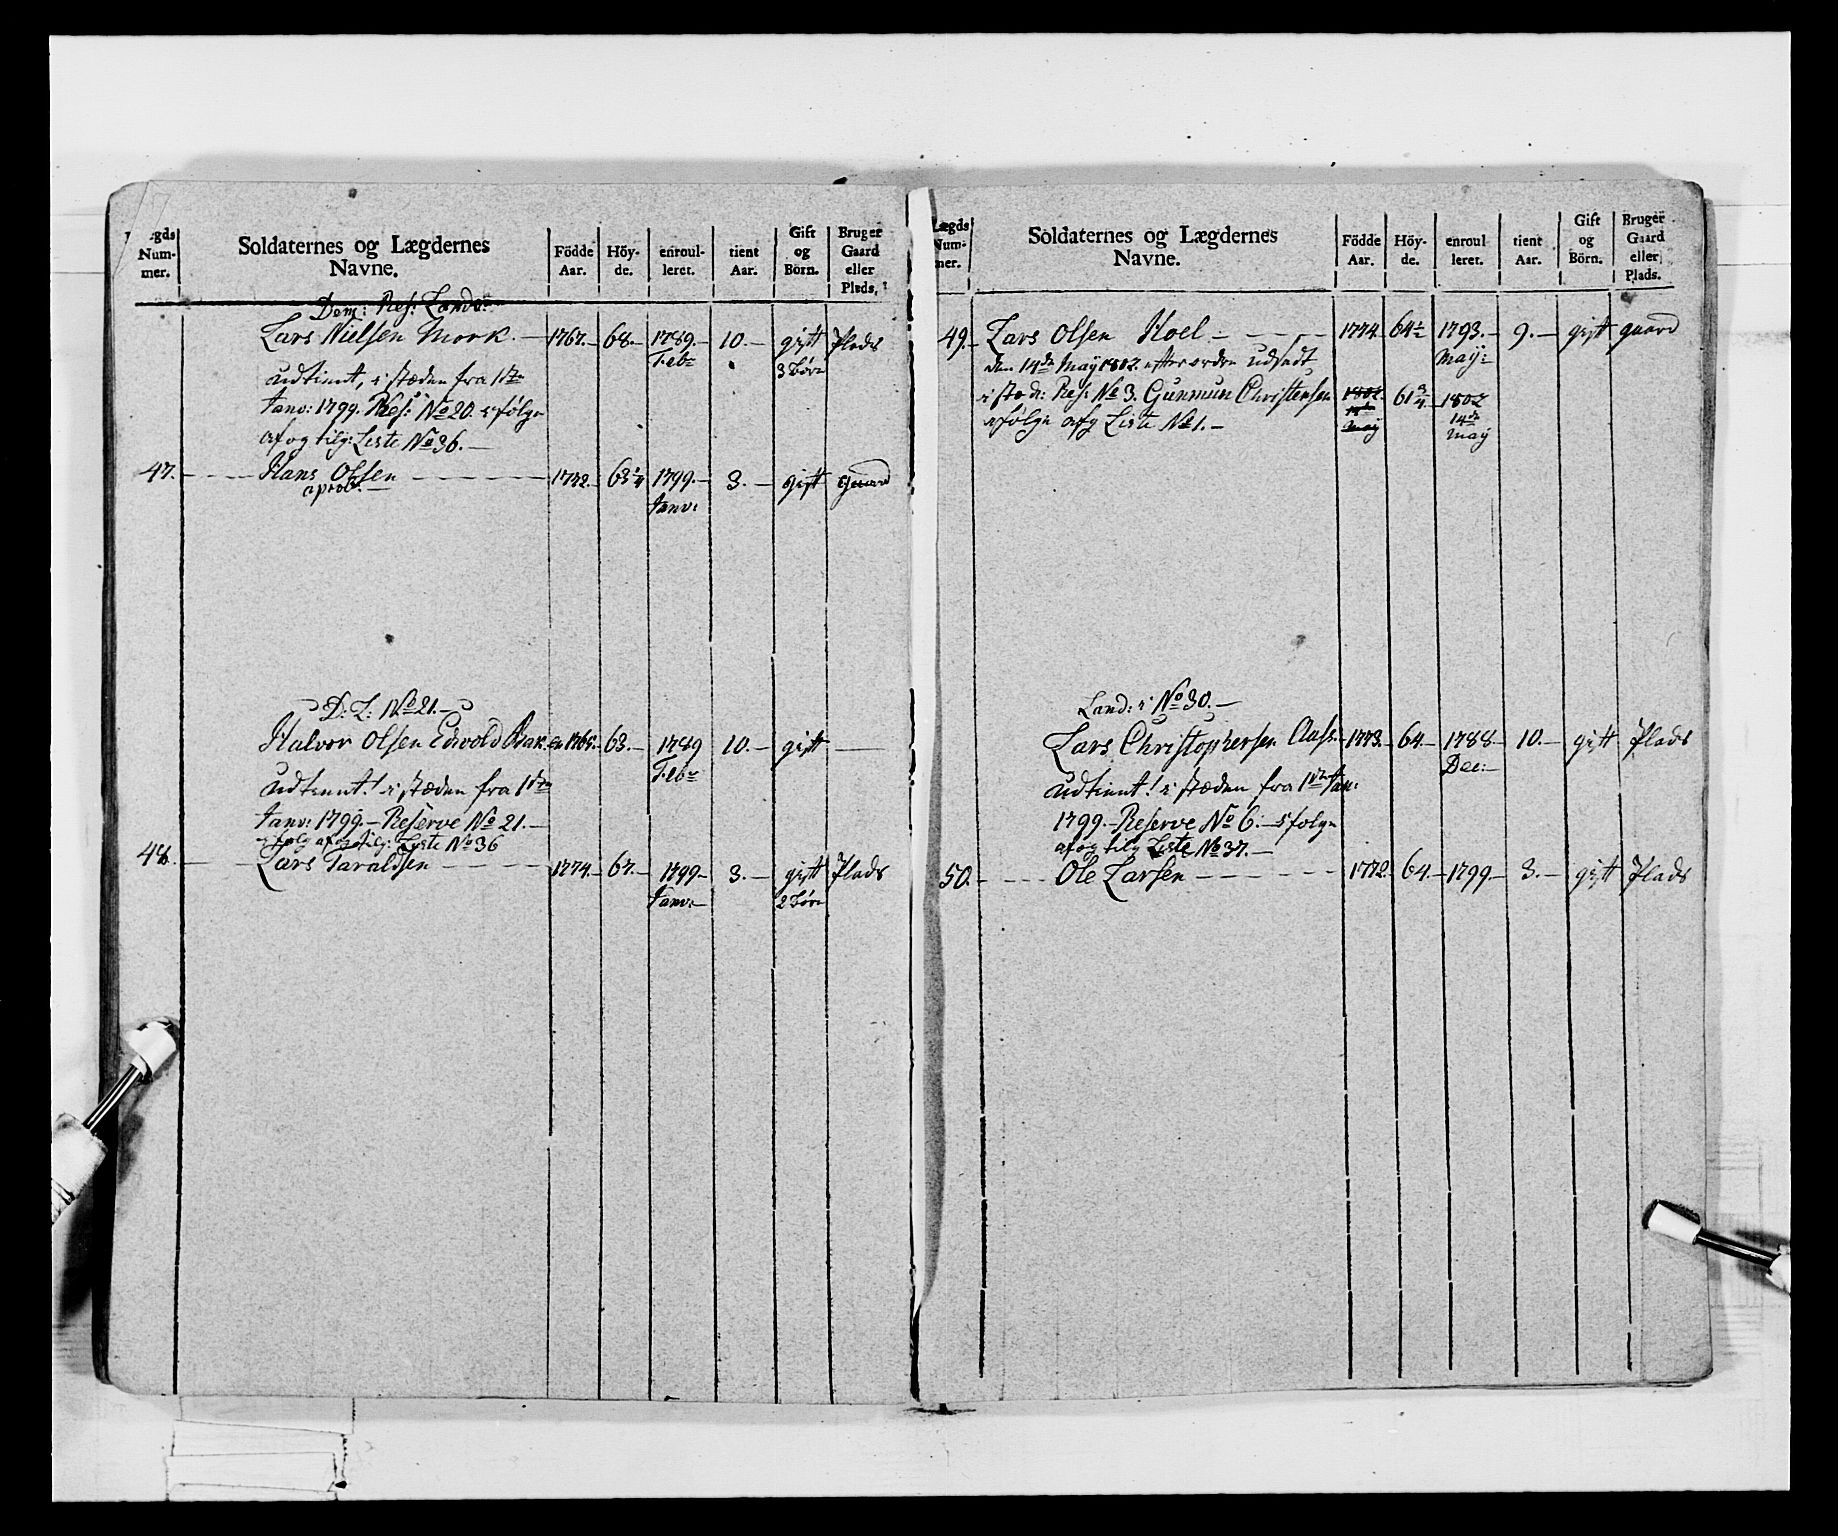 Lægds Num- mer.
Soldaternes og Lægdernes Navne.
Födde Aar.
Höy- de.
enroul- leret.
tient Aar.
Gift og Börn.
Bruger Gaard eller Plads.
Lars Nielsen Mork. — 1767. 68. 1789. 10. gift Plads
Febr 3 børn
udtient, i stæden fra 1ste
Janv: 1799. Res: No 20. ifølge
af og tilg: Liste No 36. —
47. — Hans Olsen — 1772. 63 1/4 1799. 3. — gift Gaard
aprob. — Janv:
D: L: No 21. —
Halvor Olsen Edvold Bak 1765. 63. — 1789 10. — gift —
Febr
udtient! i stæden fra 1ste
Janv: 1799. — Reserve No 21. —
ifølg af og tilg: Liste No 36
48. — Lars Taraldsen — 1774. 67. — 1799 3. — gift Plads
Janv: — 2 børn
Lægds Num- mer.
Soldaternes og Lægdernes Navne.
Födde Aar.
Höy- de.
enroul- leret.
tient Aar.
Gift og Börn.
Bruger Gaard eller Plads.
49. Lars Olsen Hoel — 1774. 64 1/2 1793. 9. — gift gaard
den 14de May 1802. efter ordre udsadt May:
i stæd: Res: No 3. Gunmun Christensen 1802 61 3/4 1802
ifølge afg Liste No 1. — may 14de may
Land: i No 30. —
Lars Christophersen Aass. 1773. 64. — 1788 10. — gift Plads
Dec: —
udtient! i stæden fra 1ste Jan:
1799. — Reserve No 6. — ifølge
af og tilg Liste No 37. —
50. — Ole Larsen — 1772. 64. — 1799. 3. — gift Plads